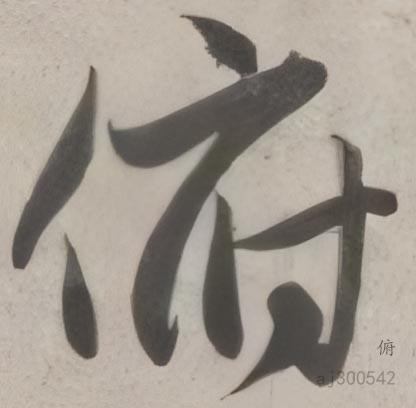 俯
俯
aj300542